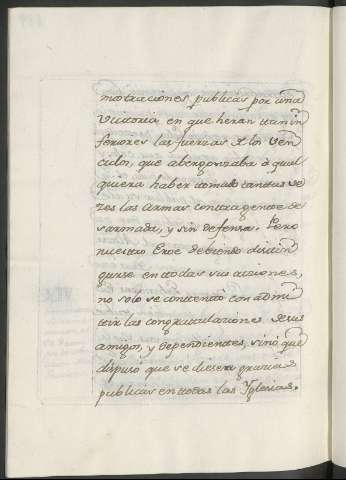 mostraciones publicas por una
Victoria, en que heran ttan in
feriores las fuerzas de los ven
cidos, que abergonzaba à qual
quiera haber tomado tantas ve
zes las Armas contra gente de
sarmada, y sin defensa. Pero
nuestro Eroe debiendo distin
guirse en ttodas sus acciones,
no solo se conttentò con admi
ttir las congratulaciones de sus
amigos, y dependientes, sinò que
dispusò que se diesen gracias
publicas en ttodas las Yglesias.